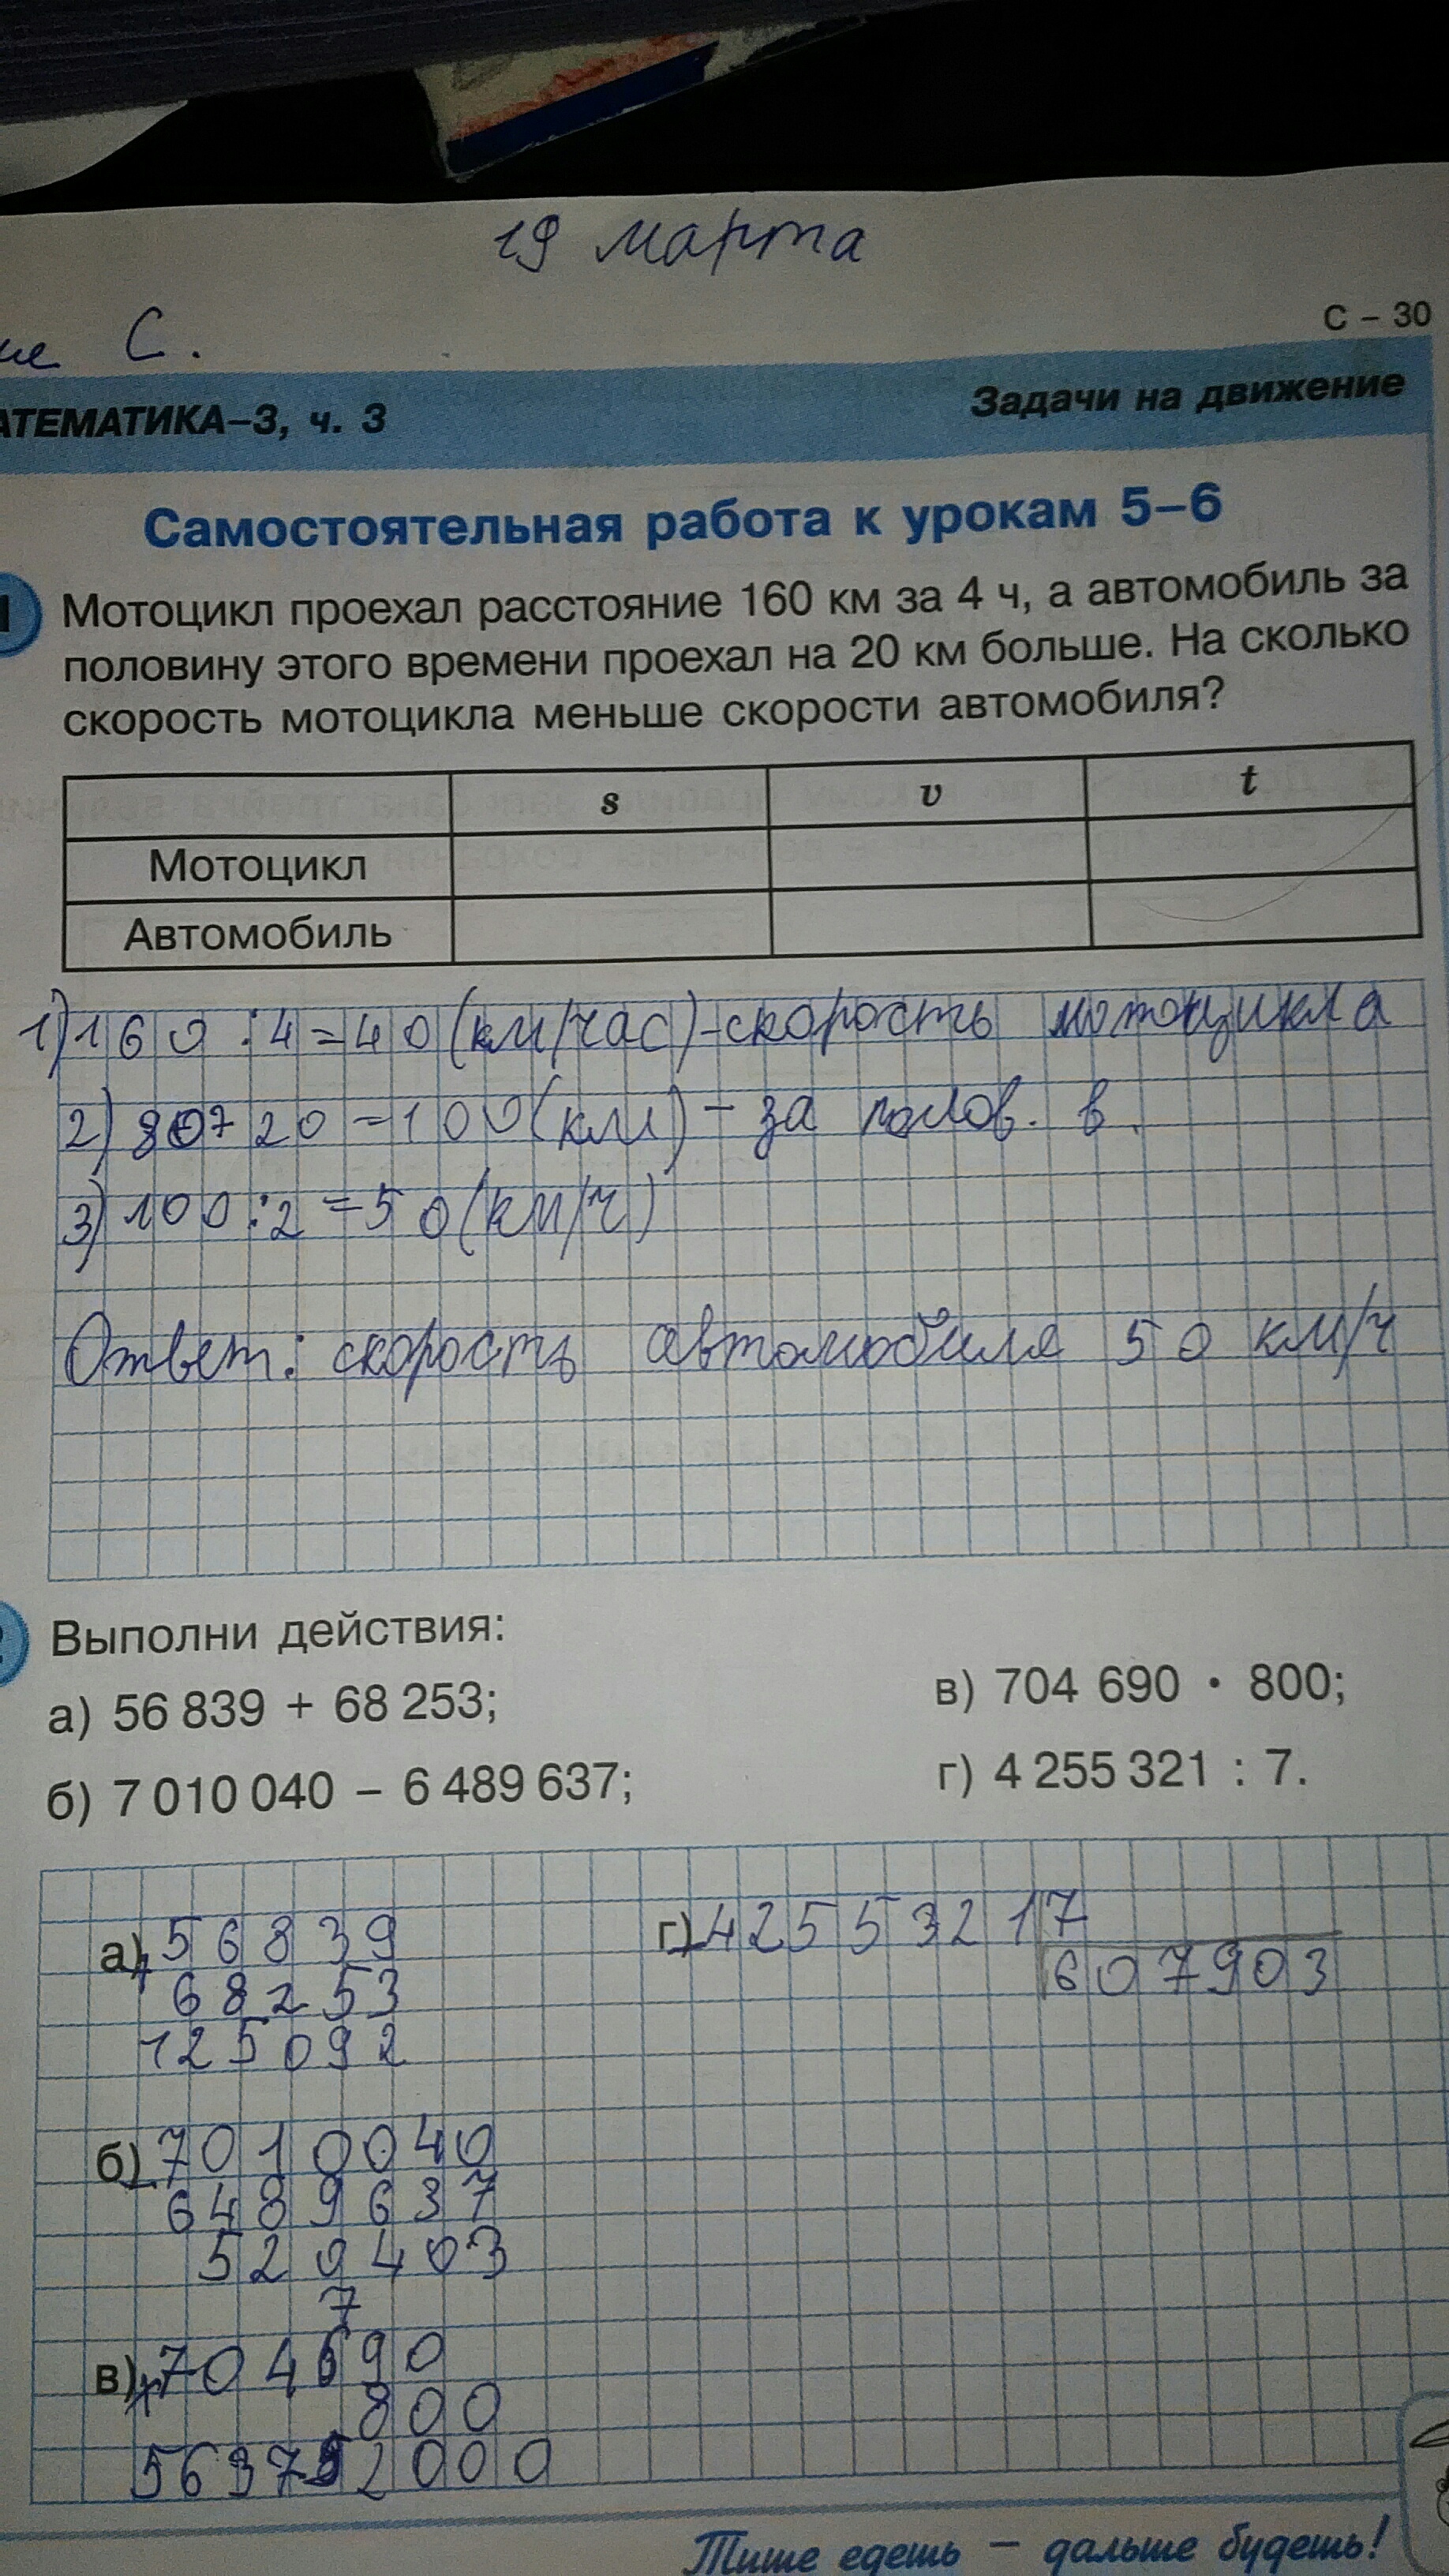 19 марта
С.
С – 30
АТЕМАТИКА–3, ч. 3
Задачи на движение
Самостоятельная работа к урокам 5–6
1 Мотоцикл проехал расстояние 160 км за 4 ч, а автомобиль за
половину этого времени проехал на 20 км больше. На сколько
скорость мотоцикла меньше скорости автомобиля?
s v t
Мотоцикл
Автомобиль
1) 160 : 4 = 40 (км/час) - скорость мотоцикла
2) 80 + 20 = 100 (км) - за полов. в.
3) 100 : 2 = 50 (км/ч)
Ответ: скорость автомобиля 50 км/ч
Выполни действия:
а) 56 839 + 68 253;
в) 704 690 · 800;
б) 7 010 040 – 6 489 637;
г) 4 255 321 : 7.
а) + 56839
68253
125092
г) 4255321 7
607903
б) - 7010040
6489637
520403
7
в) х 704690
800
563752000
Тише едешь – дальше будешь!